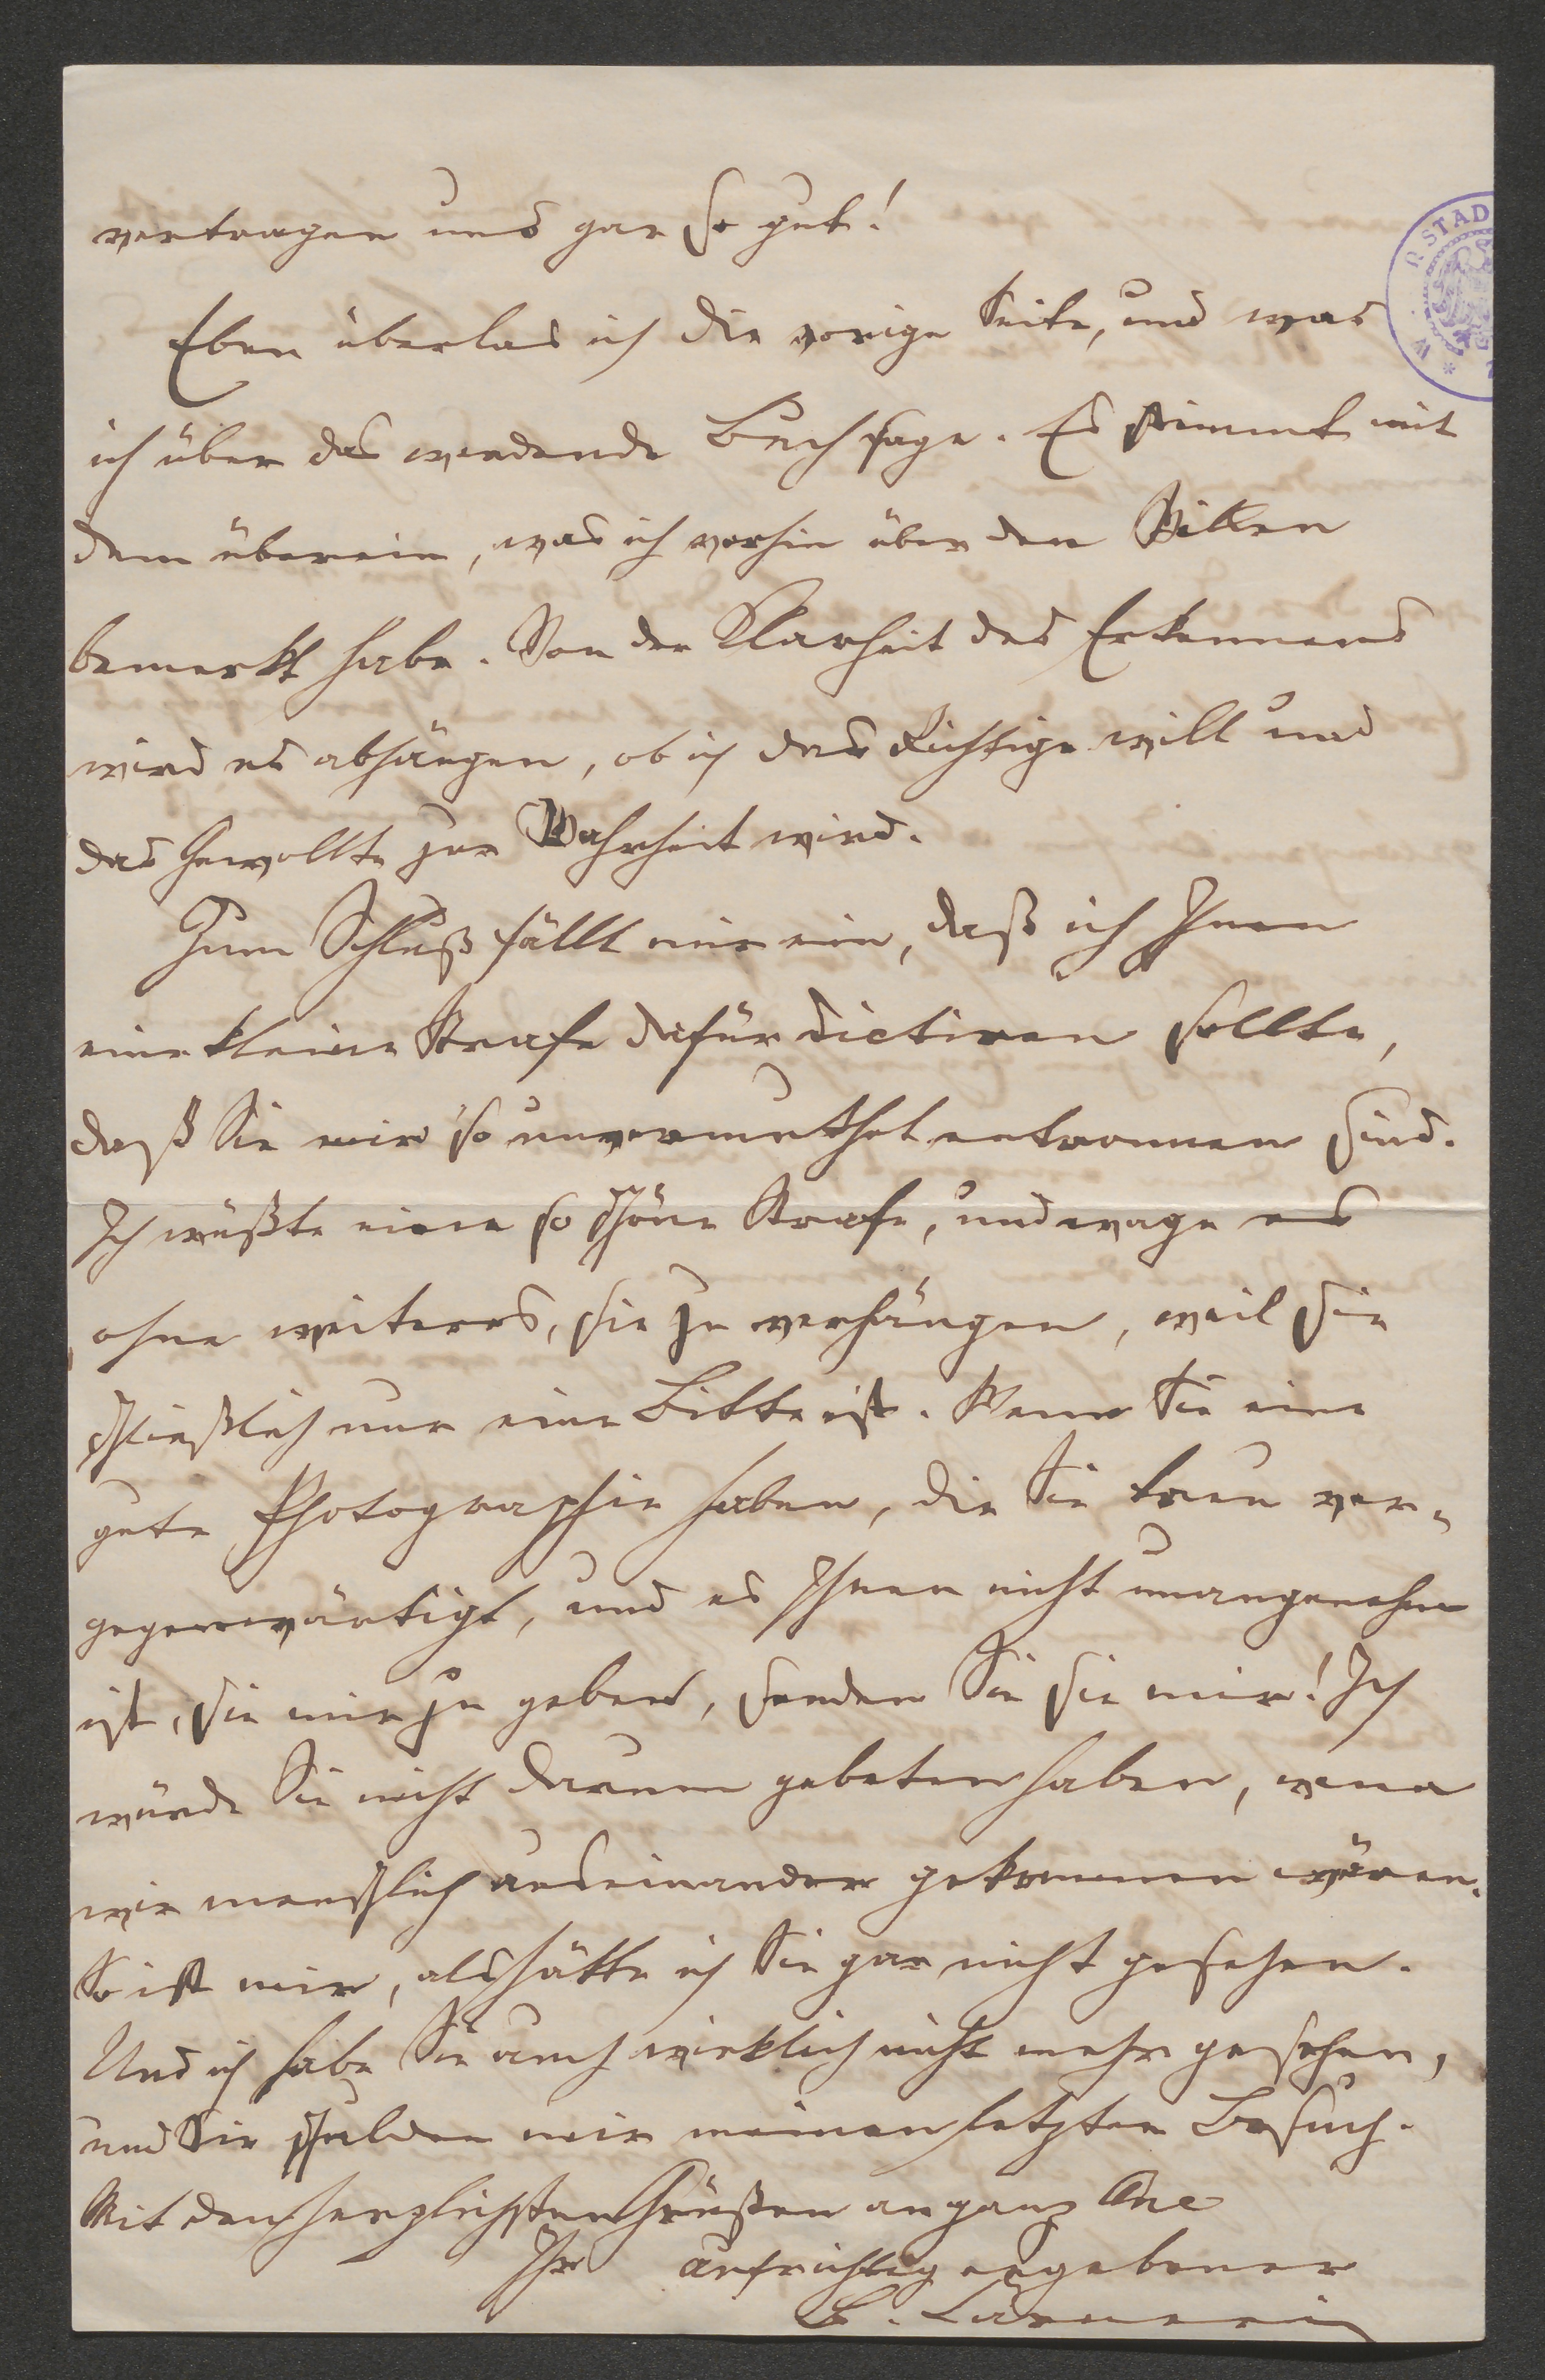 vertragen uns gar so gut!
Eben überlas ich die vorige Seite, und was
ich über das werdende Buch sage. Es stimmt mit
dem überein, was ich vorhin über den Willen
bemerkt habe. Von der Klarheit des Erkennens
wird es abhängen, ob ich das Richtige will und
das Gewollte zur Wahrheit wird.
Zum Schluß fällt mir ein, daß ich Ihnen
eine kleine Strafe dafür dictiren sollte,
daß Sie mir so unvermuthet entronnen sind.
Ich wüßte eine so schöne Strafe, und wage es
ohne weiteres, sie zu verhängen, weil sie
schließlich nur eine Bitte ist. Wenn Sie eine
gute Photographie haben, die Sie treu ver-
gegenwärtigt, und es Ihnen nicht unangenehm
ist, sie mir zu geben, senden Sie sie mir! Ich
würde Sie nicht darum gebeten haben, wenn
wir menschlich auseinander gekommen wären.
So ist mir, als hätte ich Sie gar nicht gesehen.
Und ich habe Sie auch wirklich nicht mehr gesehen,
und Sie schulden mir meinen letzten Besuch.
Mit den herzlichsten Grüßen an ganz
Ihr aufrichtig ergebener
B. Carneri
STAD
W